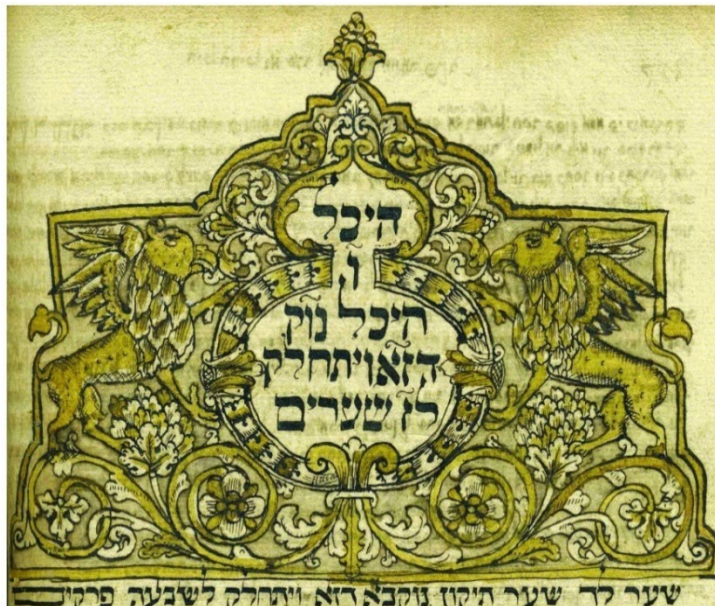 היכל
ו
היכל נוק
דזא ויתחלק
לז שערים
שער לד שער תיקון נוקבא דזא ויתחלק לשבעה פרקי